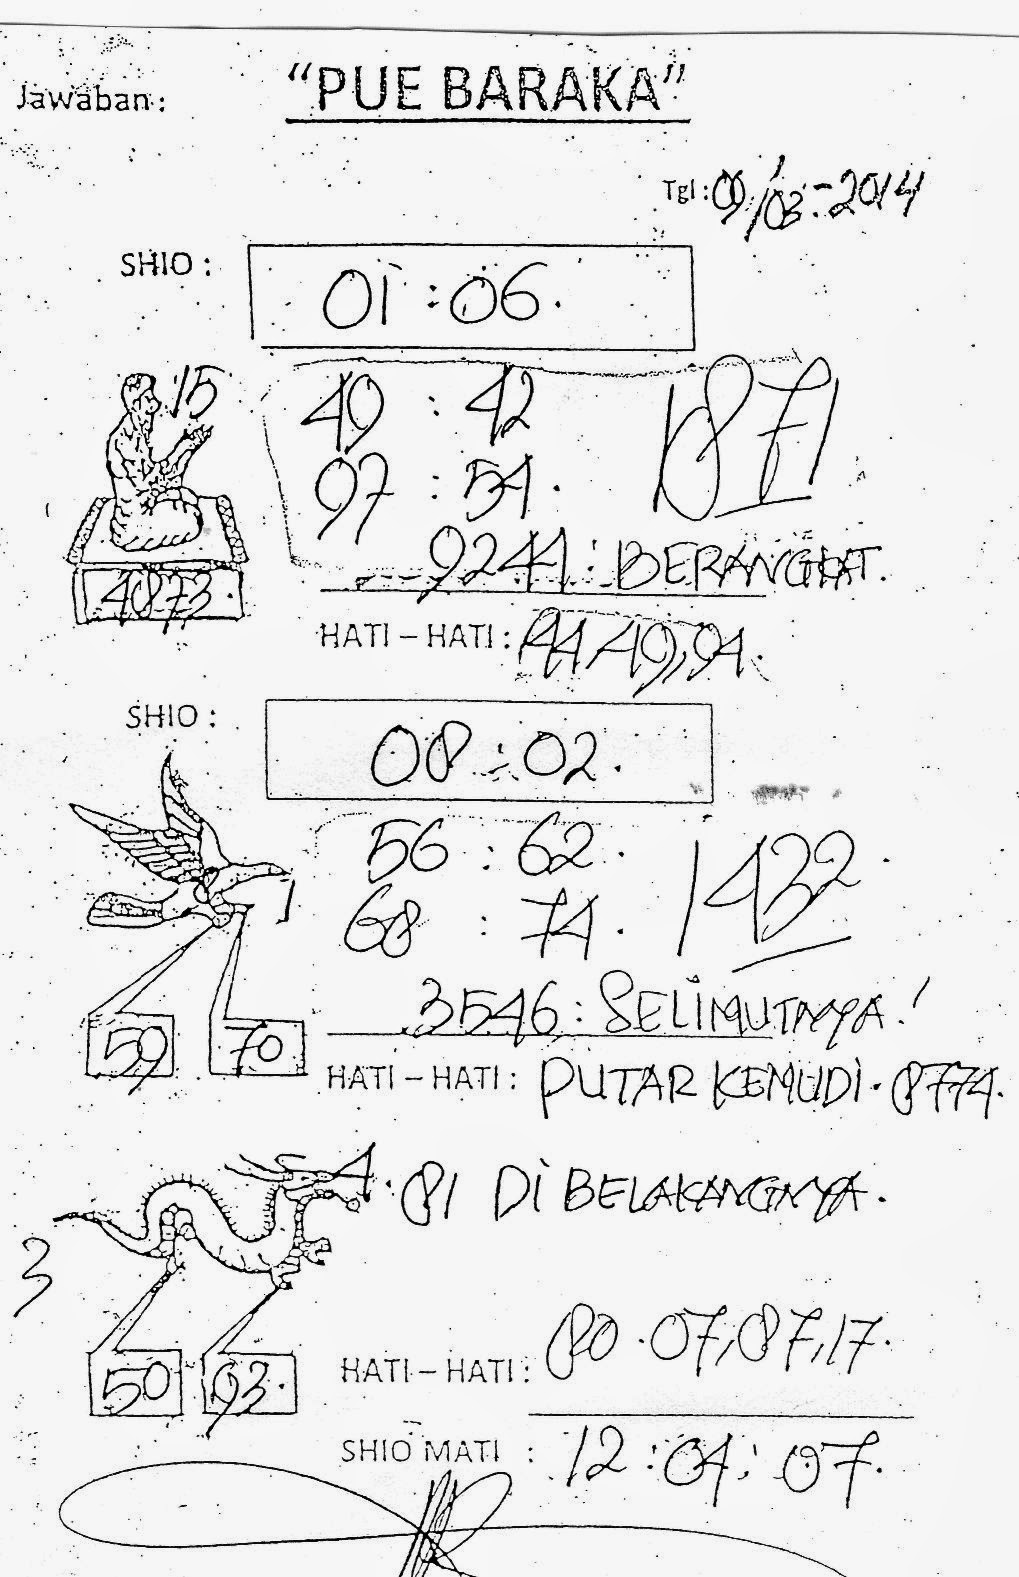 Jawaban: "PUE BARAKA"
Tgl: 09/03-2014
SHIO: 01 : 06.
15 49 : 42 1871
97 : 54.
9244 : BERANGKAT.
4873.
HATI - HATI : 44, 49, 94.
SHIO : 08 : 02.
56 : 62. 1432
1
68 : 74.
3546 : SELIMUTNYA!
59 70
HATI - HATI : PUTAR KEMUDI. 8774.
4. 81 Di BELAKANGNYA.
3
HATI - HATI : 80. 07, 87, 17.
50 93.
SHIO MATI : 12 : 04 : 07.